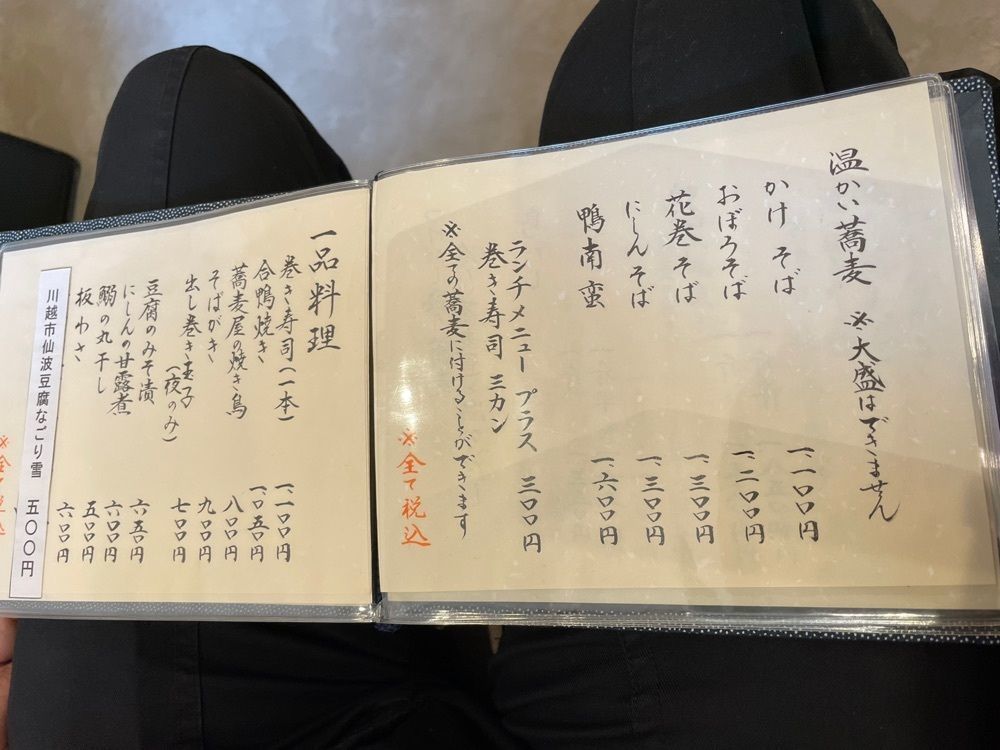 温かい蕎麦 ※大盛はできません
かけ そば 一、一〇〇円
おぼろそば 一、二〇〇円
花巻 そば 一、三〇〇円
にしん そば 一、三〇〇円
鴨南蛮 一、六〇〇円
ランチメニュー プラス 三〇〇円
巻き寿司 三カン
※全ての蕎麦に付けることができます
※全て税込
一品料理
巻き寿司(一本) 一、一〇〇円
合鴨焼き 一、〇五〇円
蕎麦屋の焼き鳥 八〇〇円
そばがき 九〇〇円
出し巻き玉子 七〇〇円
(夜のみ)
豆腐のみそ漬 六五〇円
にしんの甘露煮 六〇〇円
鰯の丸干し 五〇〇円
板わさ 六〇〇円
川越市仙波豆腐なごり雪 五〇〇円
※全て税込